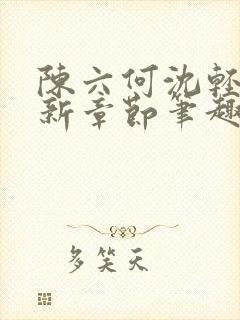 陳六何沈輕
新章節筆趣
多笑天